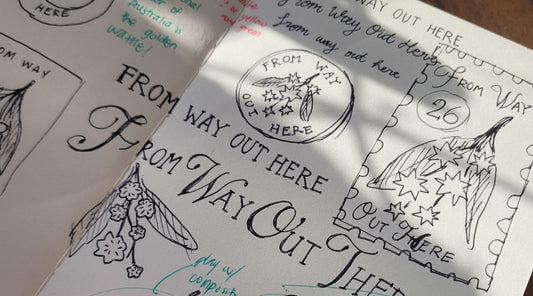 HERE
of
Australia is
the golden
wattle!
yellow
and green
From Way Out Here
WAY OUT HERE
From way out here
OM WAY
FROM WAY
OUT HERE
FROM WAY
26
OUT HERE
FROM WAY OUT HERE
FROM WAY OUT THE
play w/